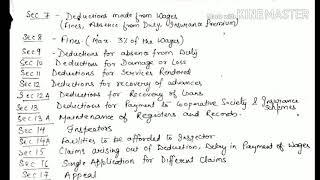 Sec 7 - Deductions made from Wages
(Fines, Absence from Duty, Insurance Premium)
Made with KINEMASTER
Sec 8 - Fines. (Max. 3% of the Wages)
Sec 9 - Deductions for absence from Duty
Sec 10 Deductions for Damage or Loss
Sec 11 Deductions for Services Rendered
Sec 12 Deductions for recovery of advances
Sec 12A Deductions for Recovery of Loans
Sec 13 Deductions for Payment to Cooperative Society & Insurance Schemes
Sec 13A Maintenance of Registers and Records.
Sec 14 Inspectors
Sec 14A Facilities to be afforded to Inspector
Sec 15 Claims arising out of Deduction, Delay in Payment of Wages
Sec 16 Single Application for Different Claims
Sec 17 Appeal